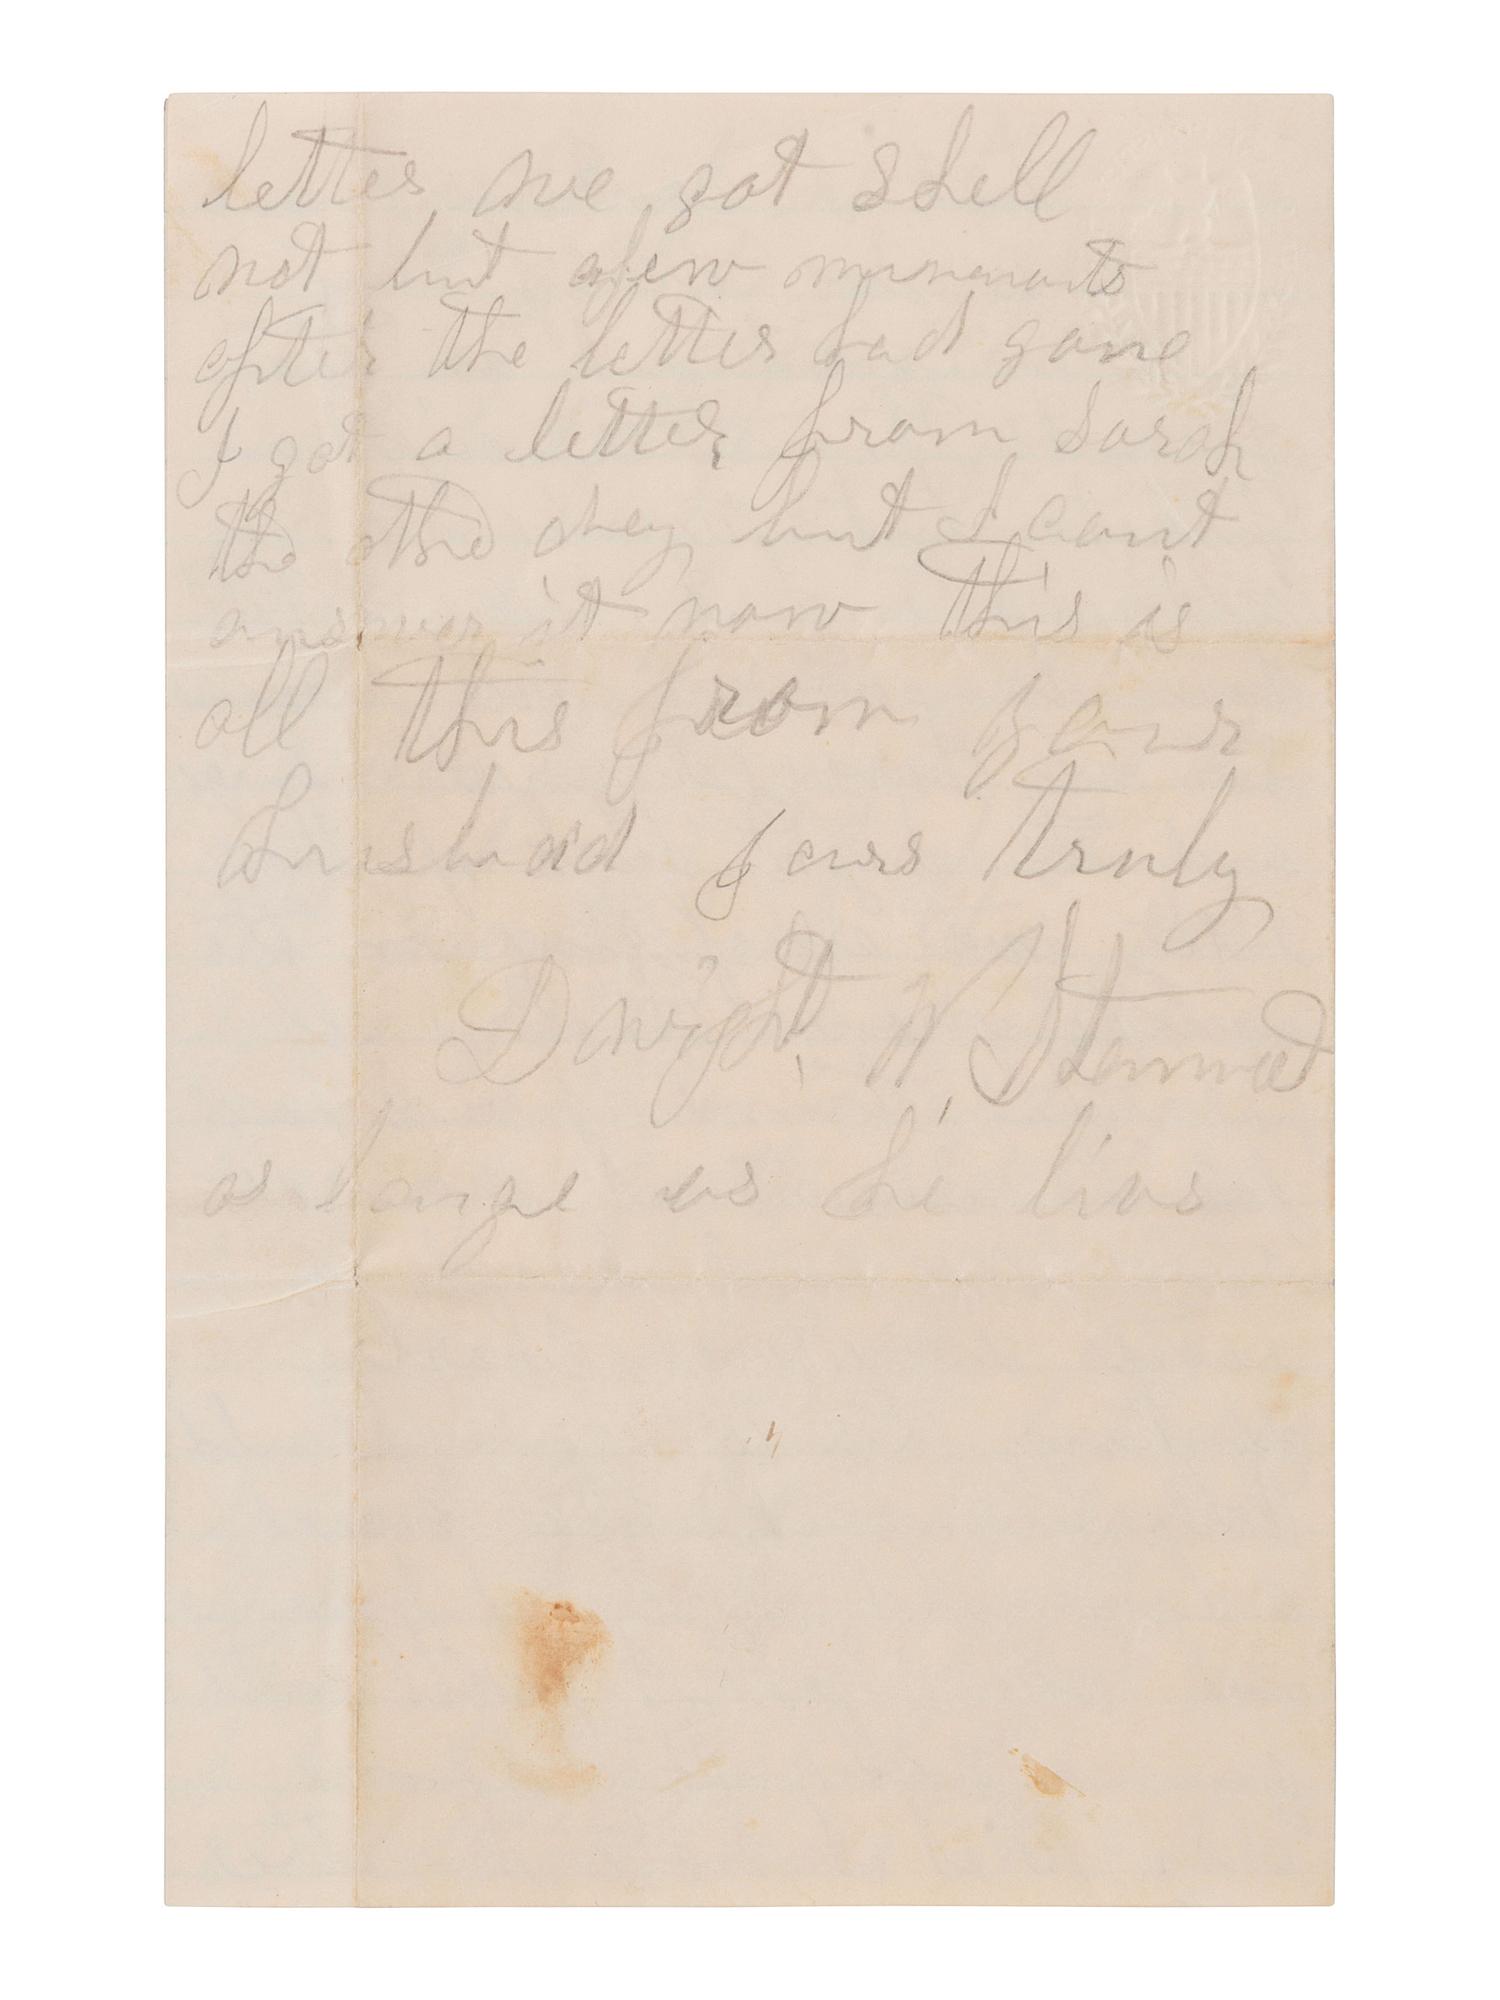 letter we got shell
not but afew
after the letter had gone
I got a letter from Sarah
the othe dey but I cant
answer it now this is
all this from your
husband yours truly
Dwight W
as longe as he livs